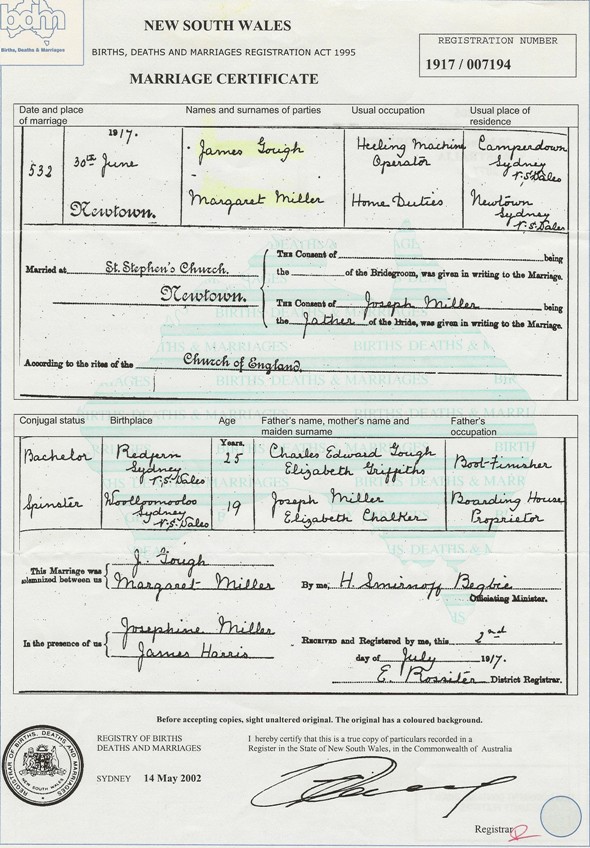 bdm
Births, Deaths & Marriages
NEW SOUTH WALES
BIRTHS, DEATHS AND MARRIAGES REGISTRATION ACT 1995
MARRIAGE CERTIFICATE
REGISTRATION NUMBER
1917 / 007194
Date and place of marriage
Names and surnames of parties
Usual occupation
Usual place of residence
532
1917.
30th June
Newtown.
James Gough
Heeling Machine Operator
Camperdown Sydney N.S.Wales
Margaret Miller
Home Duties
Newtown Sydney N.S.Wales
Married at St. Stephen's Church.
Newtown.
The Consent of being
the of the Bridegroom, was given in writing to the Marriage.
The Consent of Joseph Miller being
the Father of the Bride, was given in writing to the Marriage.
According to the rites of the Church of England.
Conjugal status
Birthplace
Age
Father's name, mother's name and maiden surname
Father's occupation
Years.
Bachelor
Redfern Sydney N.S.Wales
25
Charles Edward Gough
Elizabeth Griffiths
Boot-Finisher
Spinster
Woolloomooloo Sydney N.S.Wales
19
Joseph Miller
Elizabeth Chalker
Boarding House Proprietor
This Marriage was solemnized between us
J. Gough
Margaret Miller
By me, H. Smirnoff Begbie
Officiating Minister.
In the presence of us
Josephine Miller
James Harris
Received and Registered by me, this 2nd
day of July 1917.
E. Rossiter District Registrar.
Before accepting copies, sight unaltered original. The original has a coloured background.
REGISTRY OF BIRTHS
DEATHS AND MARRIAGES
SYDNEY 14 May 2002
I hereby certify that this is a true copy of particulars recorded in a
Register in the State of New South Wales, in the Commonwealth of Australia
REGISTRAR OF BIRTHS, DEATHS AND MARRIAGES
NEW SOUTH WALES
Registrar
BIRTHS DEATHS & MARRIAGES